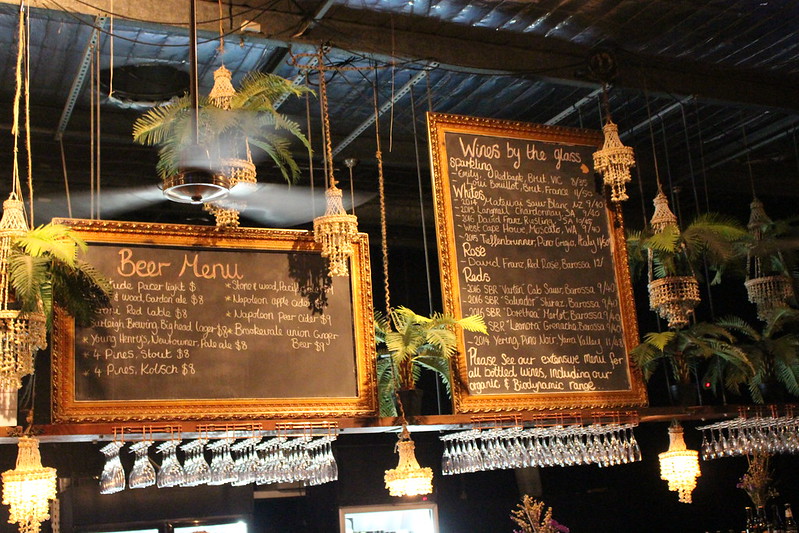 Beer Menu
Pacer light $
& Wood, Garden ale $8
Red table $8
Burleigh Brewing, Big head lager $8
Young Henrys, Newtowner, Pale ale $8
4 Pines, Stout $8
4 Pines, Kolsch $8
Stone & wood,
Napoleon apple cider
Napoleon pear cider $9
Brookvale union Ginger
Beer $9
Wines by the glass
Sparkling
- Emily Redbank, Brut, VIC
- Louis Bouillot, Brut, France
Whites
- 2014 Matquai Sauv Blanc NZ 9/40
- 2015 Langmeil Chardonnay, SA
- 2016 David Franz Riesling, SA
- West Cape Howe, Moscato, WA 9/40
- 2015 Tieffenbrunner, Pino Grigio, Italy 11/50
Rosé
- David Franz, Red Rose, Barossa 12/
Reds
- 2016 SBR Cab Sauv, Barossa 9/40
- 2016 SBR "Salvador" Shiraz, Barossa 9/40
- 2016 SBR "Dorothea" Merlot, Barossa 9/40
- SBR "Leonora" Grenache, Barossa 9/40
- 2014 Yering, Pino Noir Yarra Valley 11/
Please See our extensive menu for
all bottled wines, including our
organic & Biodynamic range